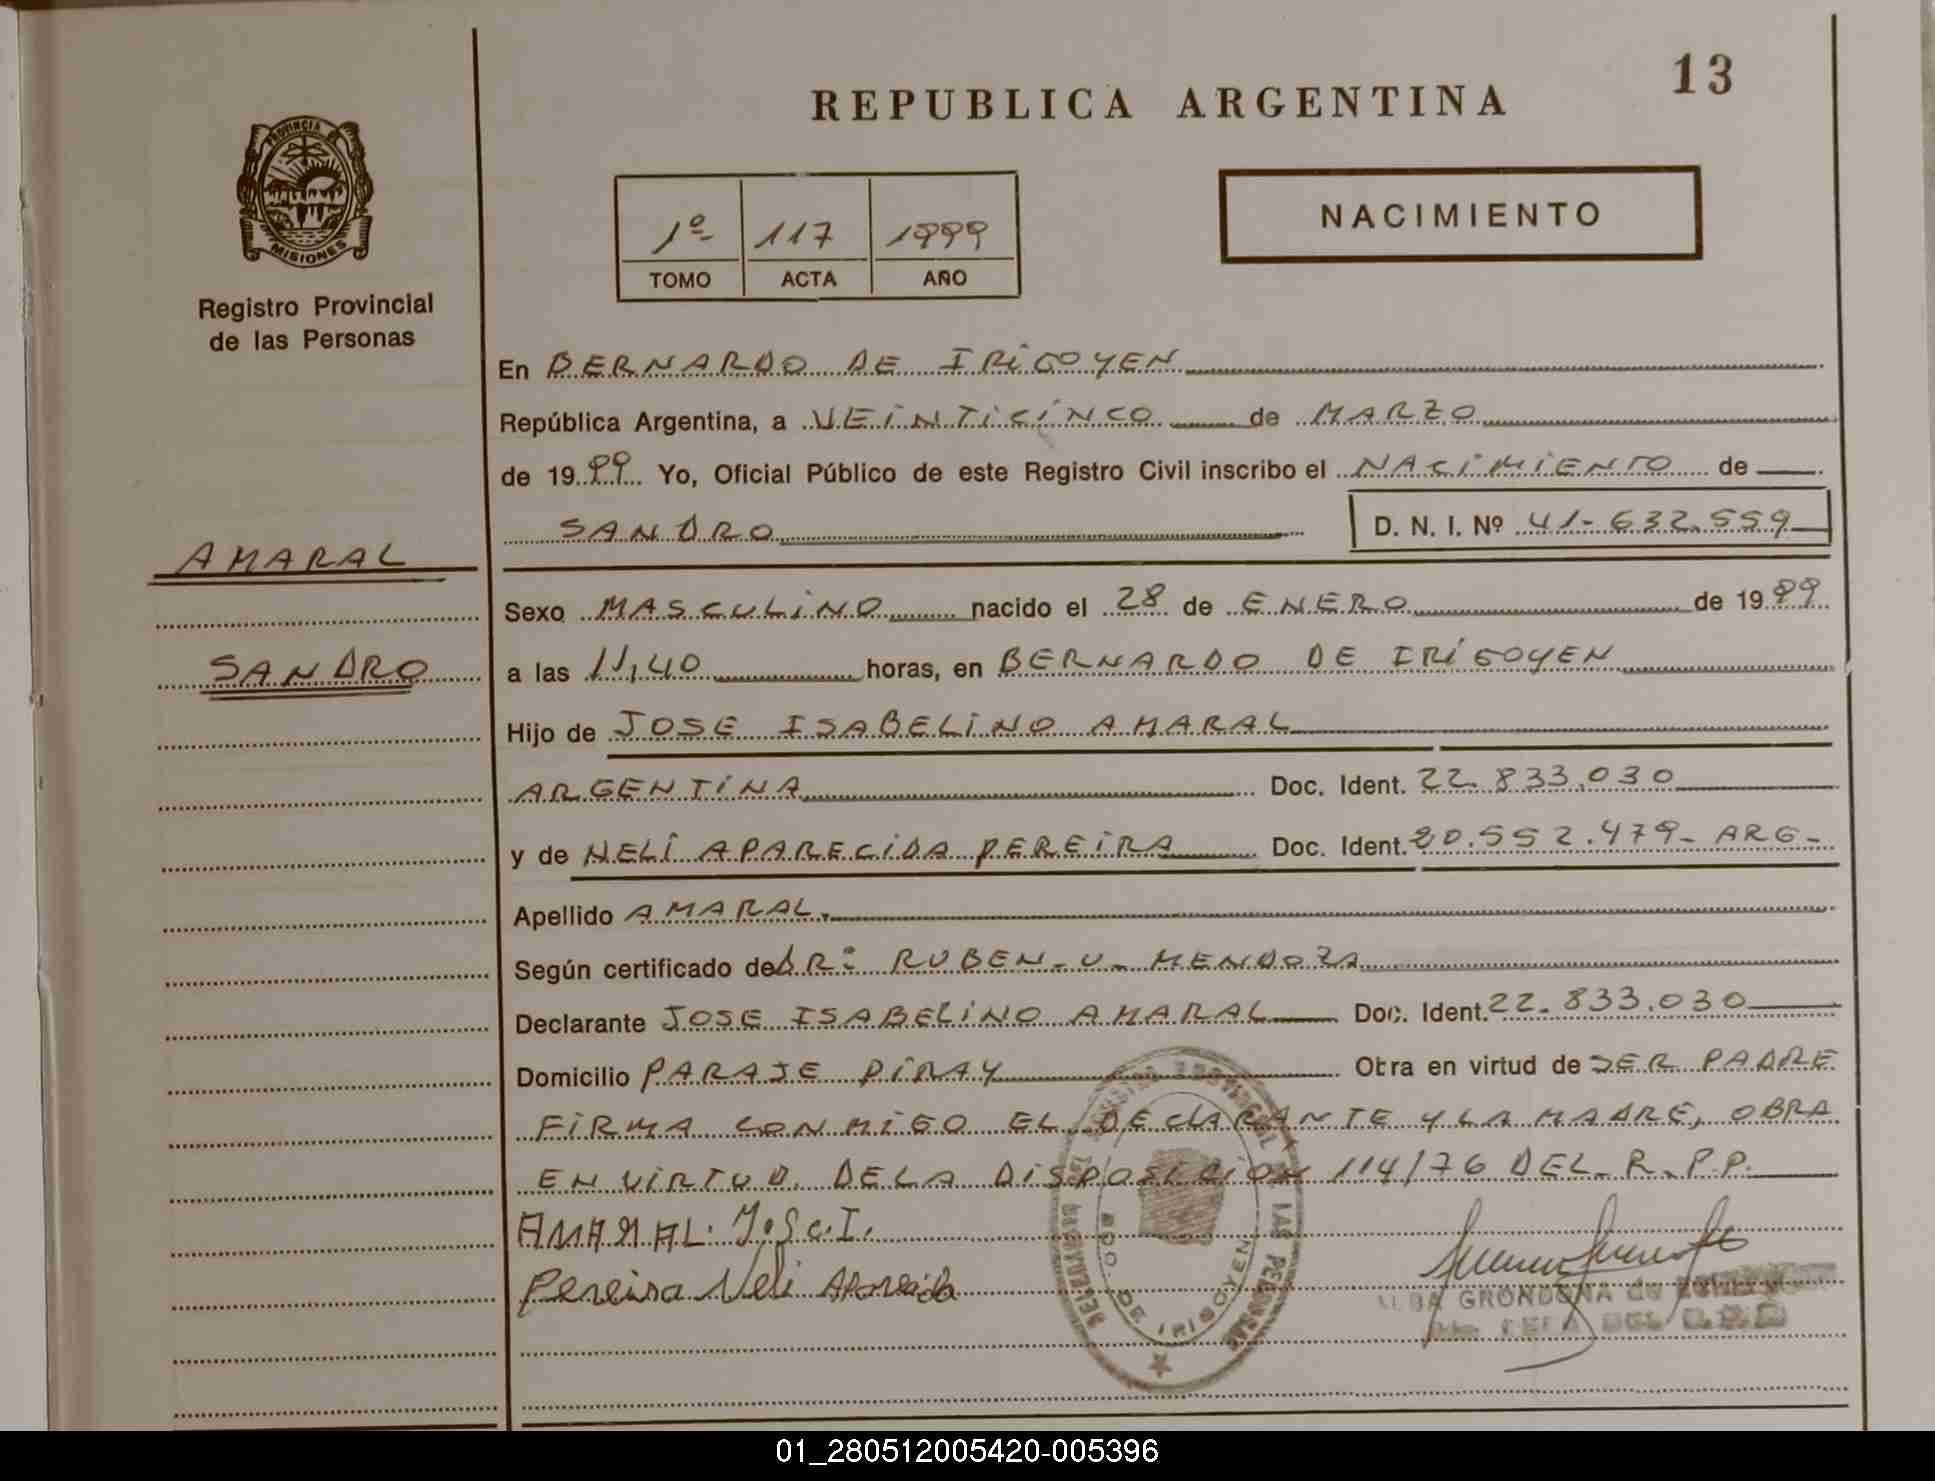 13
REPUBLICA ARGENTINA
PROVINCIA
MISIONES
Registro Provincial
de las Personas
NACIMIENTO
1º 117 1999
TOMO ACTA AÑO
En BERNARDO DE IRIGOYEN
República Argentina, a VEINTICINCO de MARZO
de 1999 Yo, Oficial Público de este Registro Civil inscribo el NACIMIENTO de
SANDRO D. N. I. Nº 41-632.559
AMARAL
Sexo MASCULINO nacido el 28 de ENERO de 1999
SANDRO
a las 11,40 horas, en BERNARDO DE IRIGOYEN
Hijo de JOSE ISABELINO AMARAL
ARGENTINA Doc. Ident. 22.833.030
y de NELI APARECIDA PEREIRA Doc. Ident. 20.552.479- ARG-
Apellido AMARAL.
Según certificado de DR: RUBEN-U- MENDOZA
Declarante JOSE ISABELINO AMARAL Doc. Ident. 22.833.030
Domicilio PARAJE PIRAY Obra en virtud de SER PADRE
FIRMA CONMIGO EL DECLARANTE Y LA MADRE, OBRA
EN VIRTUD DE LA DISPOSICION 114/76 DEL R.P.P.
AMARAL José I.
Pereira Neli Aparecida
REGISTRO PROVINCIAL DE LAS PERSONAS
BDO. DE IRIGOYEN
ALBA GRONDONA de
JEFA DEL
01_280512005420-005396